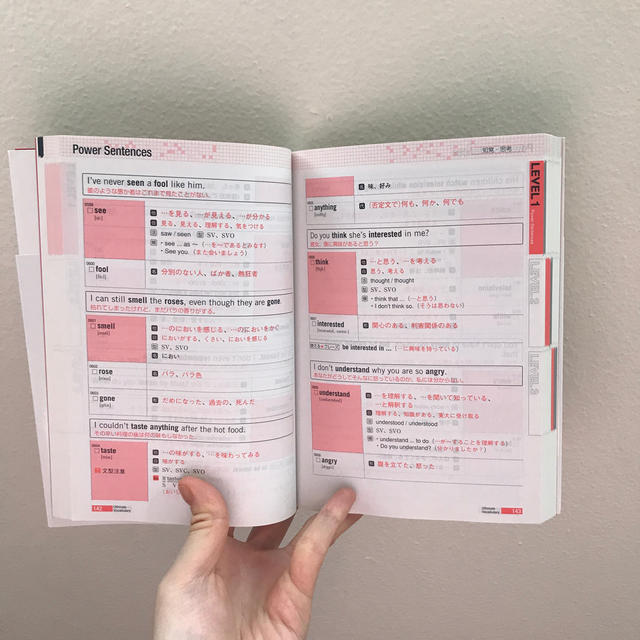 Power Sentences
I've never seen a fool like him.
彼のような愚か者はこれまで見たことがない。
see
…を見る、…が見える、…が分かる
見る、見える、理解する、気をつける
saw / seen SV、SVO
・see ... as ～（…を～であるとみなす）
・See you.（また会いましょう）
0600
fool
分別のない人、ばか者、熱狂者
I can still smell the roses, even though they are gone.
枯れてしまったけれど、まだバラの香りがする。
0601
smell
…のにおいを感じる、…のにおいをかぐ
においがする、くさい、においを感じる
SV、SVO
におい
rose
バラ、バラ色
gone
だめになった、過去の、死んだ
I couldn't taste anything after the hot food.
その辛い料理の後は何の味もしなかった。
taste
…の味がする、…を味わってみる
味がする
SV、SVC、SVO
文型注意
142
Ultimate Vocabulary
知覚・思考
味、好み
anything
（否定文で）何も、何か、何でも
Do you think she's interested in me?
彼女、僕に興味があると思う？
think
…と思う、…を考える
思う、考える
thought / thought
SV、SVO
・think that ...（…と思う）
・I don't think so.（そうは思わない）
interested
関心のある、利害関係のある
be interested in ...（…に興味を持っている）
I don't understand why you are so angry.
あなたがどうしてそんなに怒っているのか、私には分からない。
understand
…を理解する、…を聞いて知っている、
…と解釈する
理解する、知識がある、寛大に受け取る
understood / understood
SV、SVO
・understand ... to do（…が～することを理解する）
・Do you understand?（分かりましたか？）
angry
腹を立てた、怒った
LEVEL 1
LEVEL 2
LEVEL 3
Ultimate Vocabulary
143